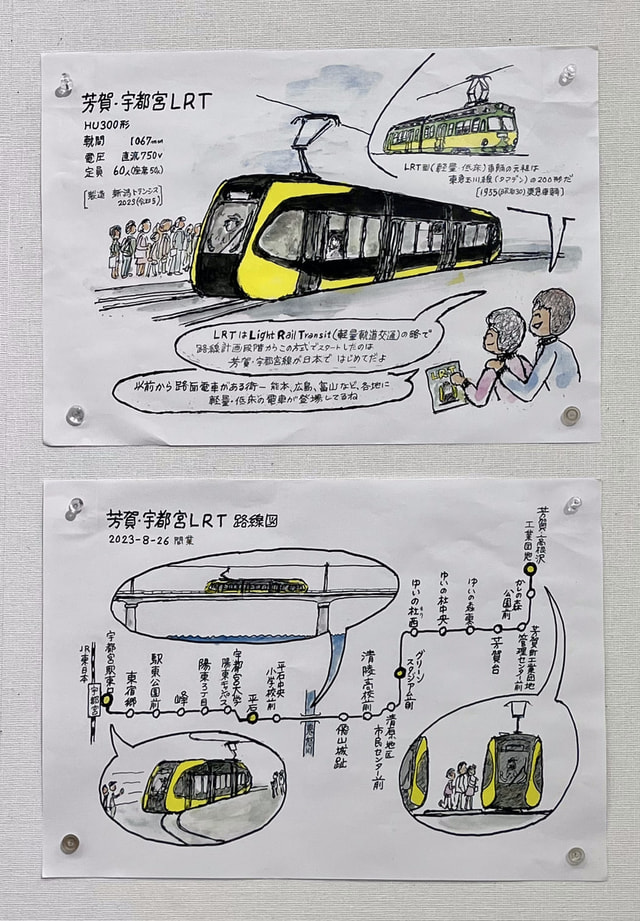 芳賀・宇都宮LRT
HU300形
軌間 1067mm
電圧 直流750V
定員 60人(座席50人)
[製造 新潟トランシス
2023(令和5)]
LRT型(軽量・低床)車輌の元祖は
東急玉川線(タマデン)の200形だ
[1955(昭和30)東急車輌]
LRTはLight Rail Transit(軽量軌道交通)の略で
路線計画段階からこの方式でスタートしたのは
芳賀・宇都宮線が日本で はじめてだよ
以前から路面電車がある街ー熊本、広島、富山など、各地に
軽量・低床の電車が登場してるね
LRT
芳賀・宇都宮LRT 路線図
2023-8-26 開業
JR東日本
宇都宮
宇都宮駅東口
東宿郷
駅東公園前
峰
陽東3丁目
宇都宮大学
陽東キャンパス
平石
平石中央
小学校前
鬼怒川
飛山城跡
清陵高校前
清原地区
市民センター前
グリーン
スタジアム前
ゆいの杜西
ゆいの杜中央
ゆいの杜東
芳賀台
芳賀町工業団地
管理センター前
かしの森
公園前
芳賀・高根沢
工業団地